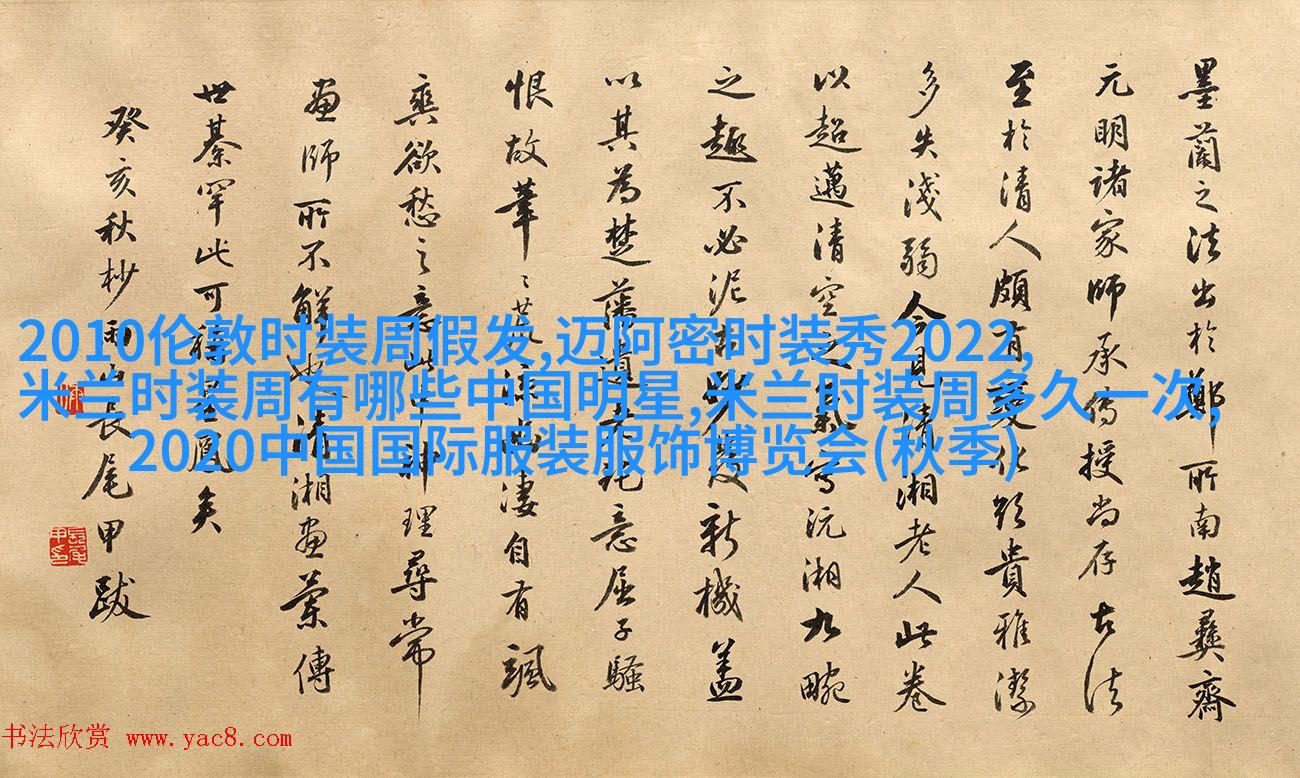 墨蘭之法出於鄭所南趙彝齋
元明諸家師承傳授尚存古法
至於清人頗有變化貴雅潔
多失淺弱今見清湘老人此卷
以超邁清空之氣寫沅湘九畹
之趣不必泥新機蓋
以其為楚藩遺老託意屈子騷
恨故淒自有颯
爽欲愁之意此中神理尋常
畫師所不解也清湘畫蘭傳
世綦罕此可稱星鳳矣
癸亥秋杪雨山長尾甲跋
2010伦敦时装周假发,迈阿密时装秀2022,
米兰时装周有哪些中国明星,米兰时装周多久一次,
2020中国国际服装服饰博览会(秋季)
书法欣赏 www.yac8.com